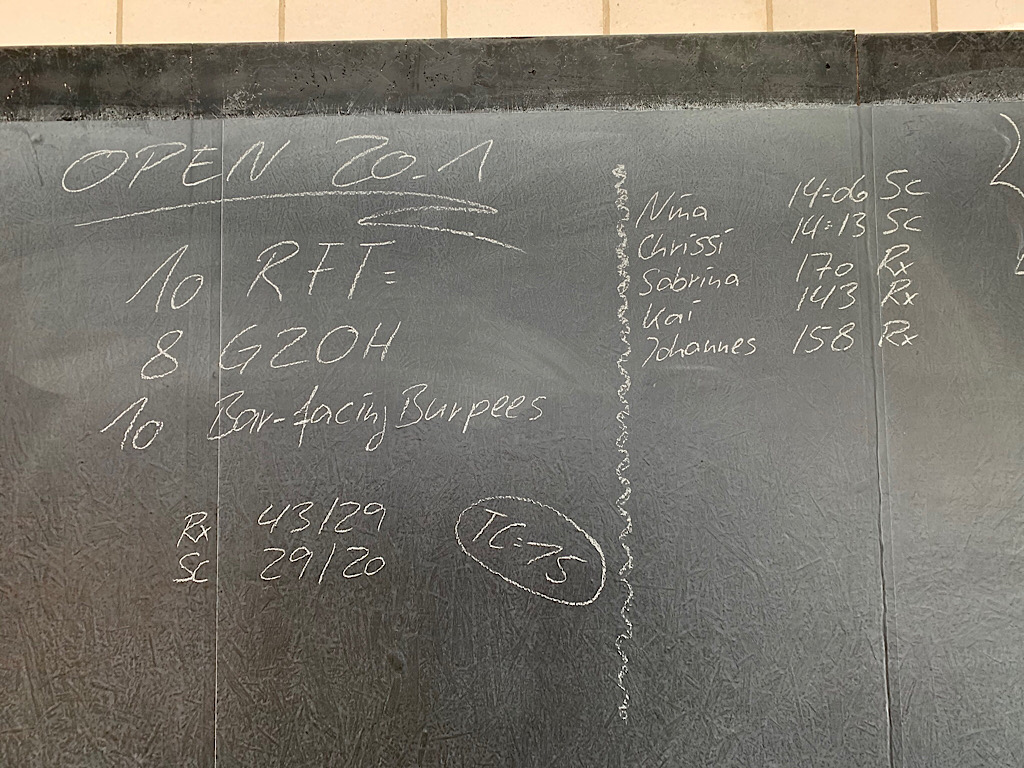 OPEN 20.1
10 RFT:
8 G2OH
10 Bar-facing Burpees
Rx 43/29
Sc 29/20
TC: 15
Nina 14:06 Sc
Chrissi 14:13 Sc
Sabrina 170 Rx
Kai 143 Rx
Johannes 158 Rx